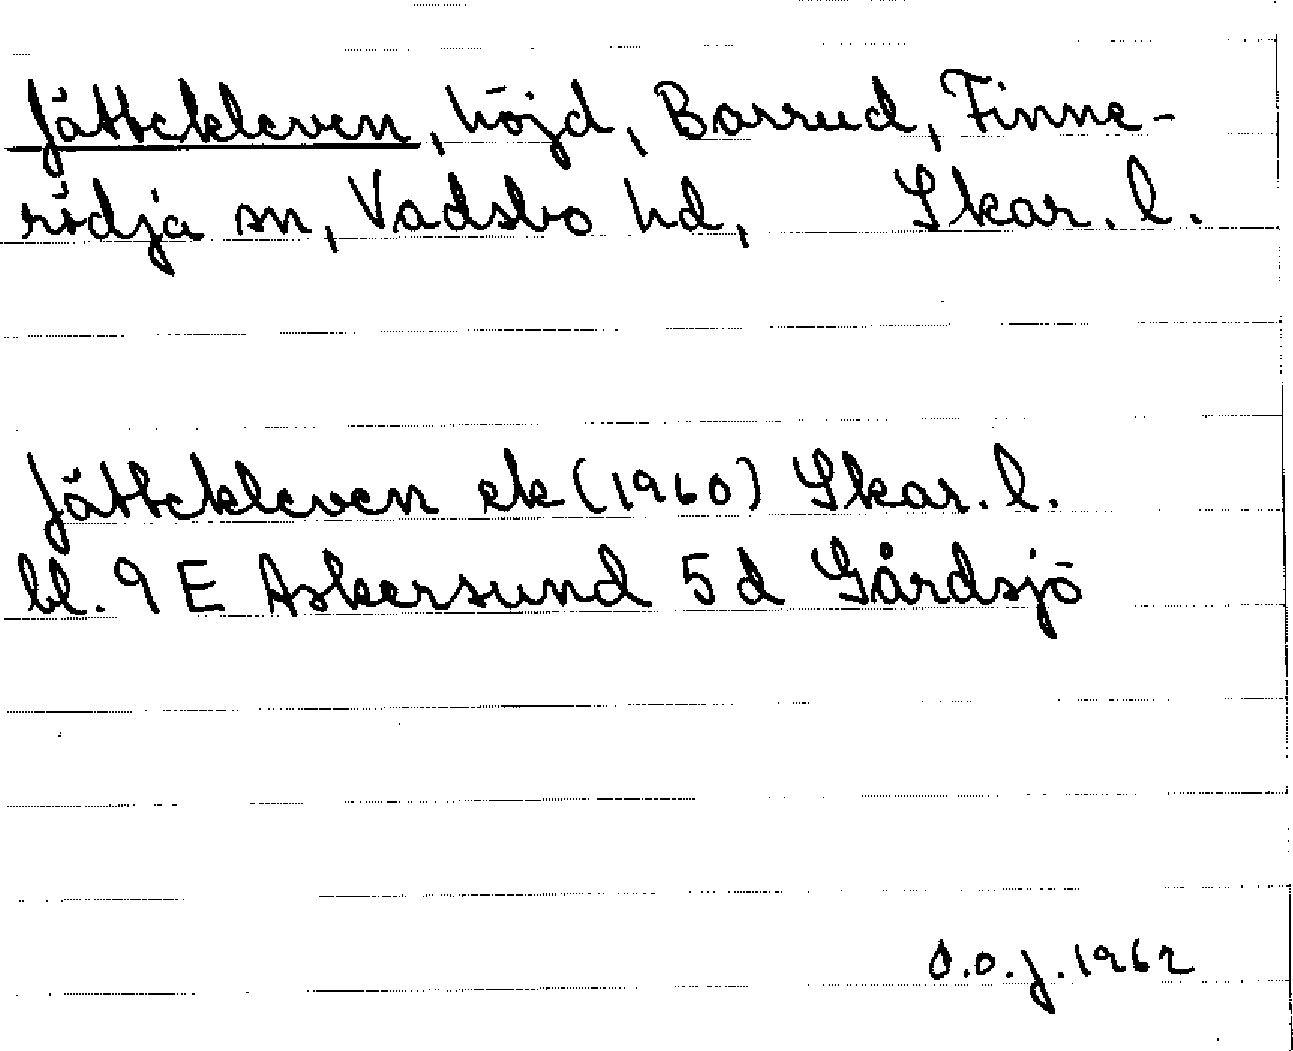 Jättekleven, höjd, Barrud, Finne-
rödja sn, Vadsbo hd, Skar. l.
Jättekleven ek (1960) Skar. l.
bl. 9 E Askersund 5 d Gårdsjö
O.o.J. 1962